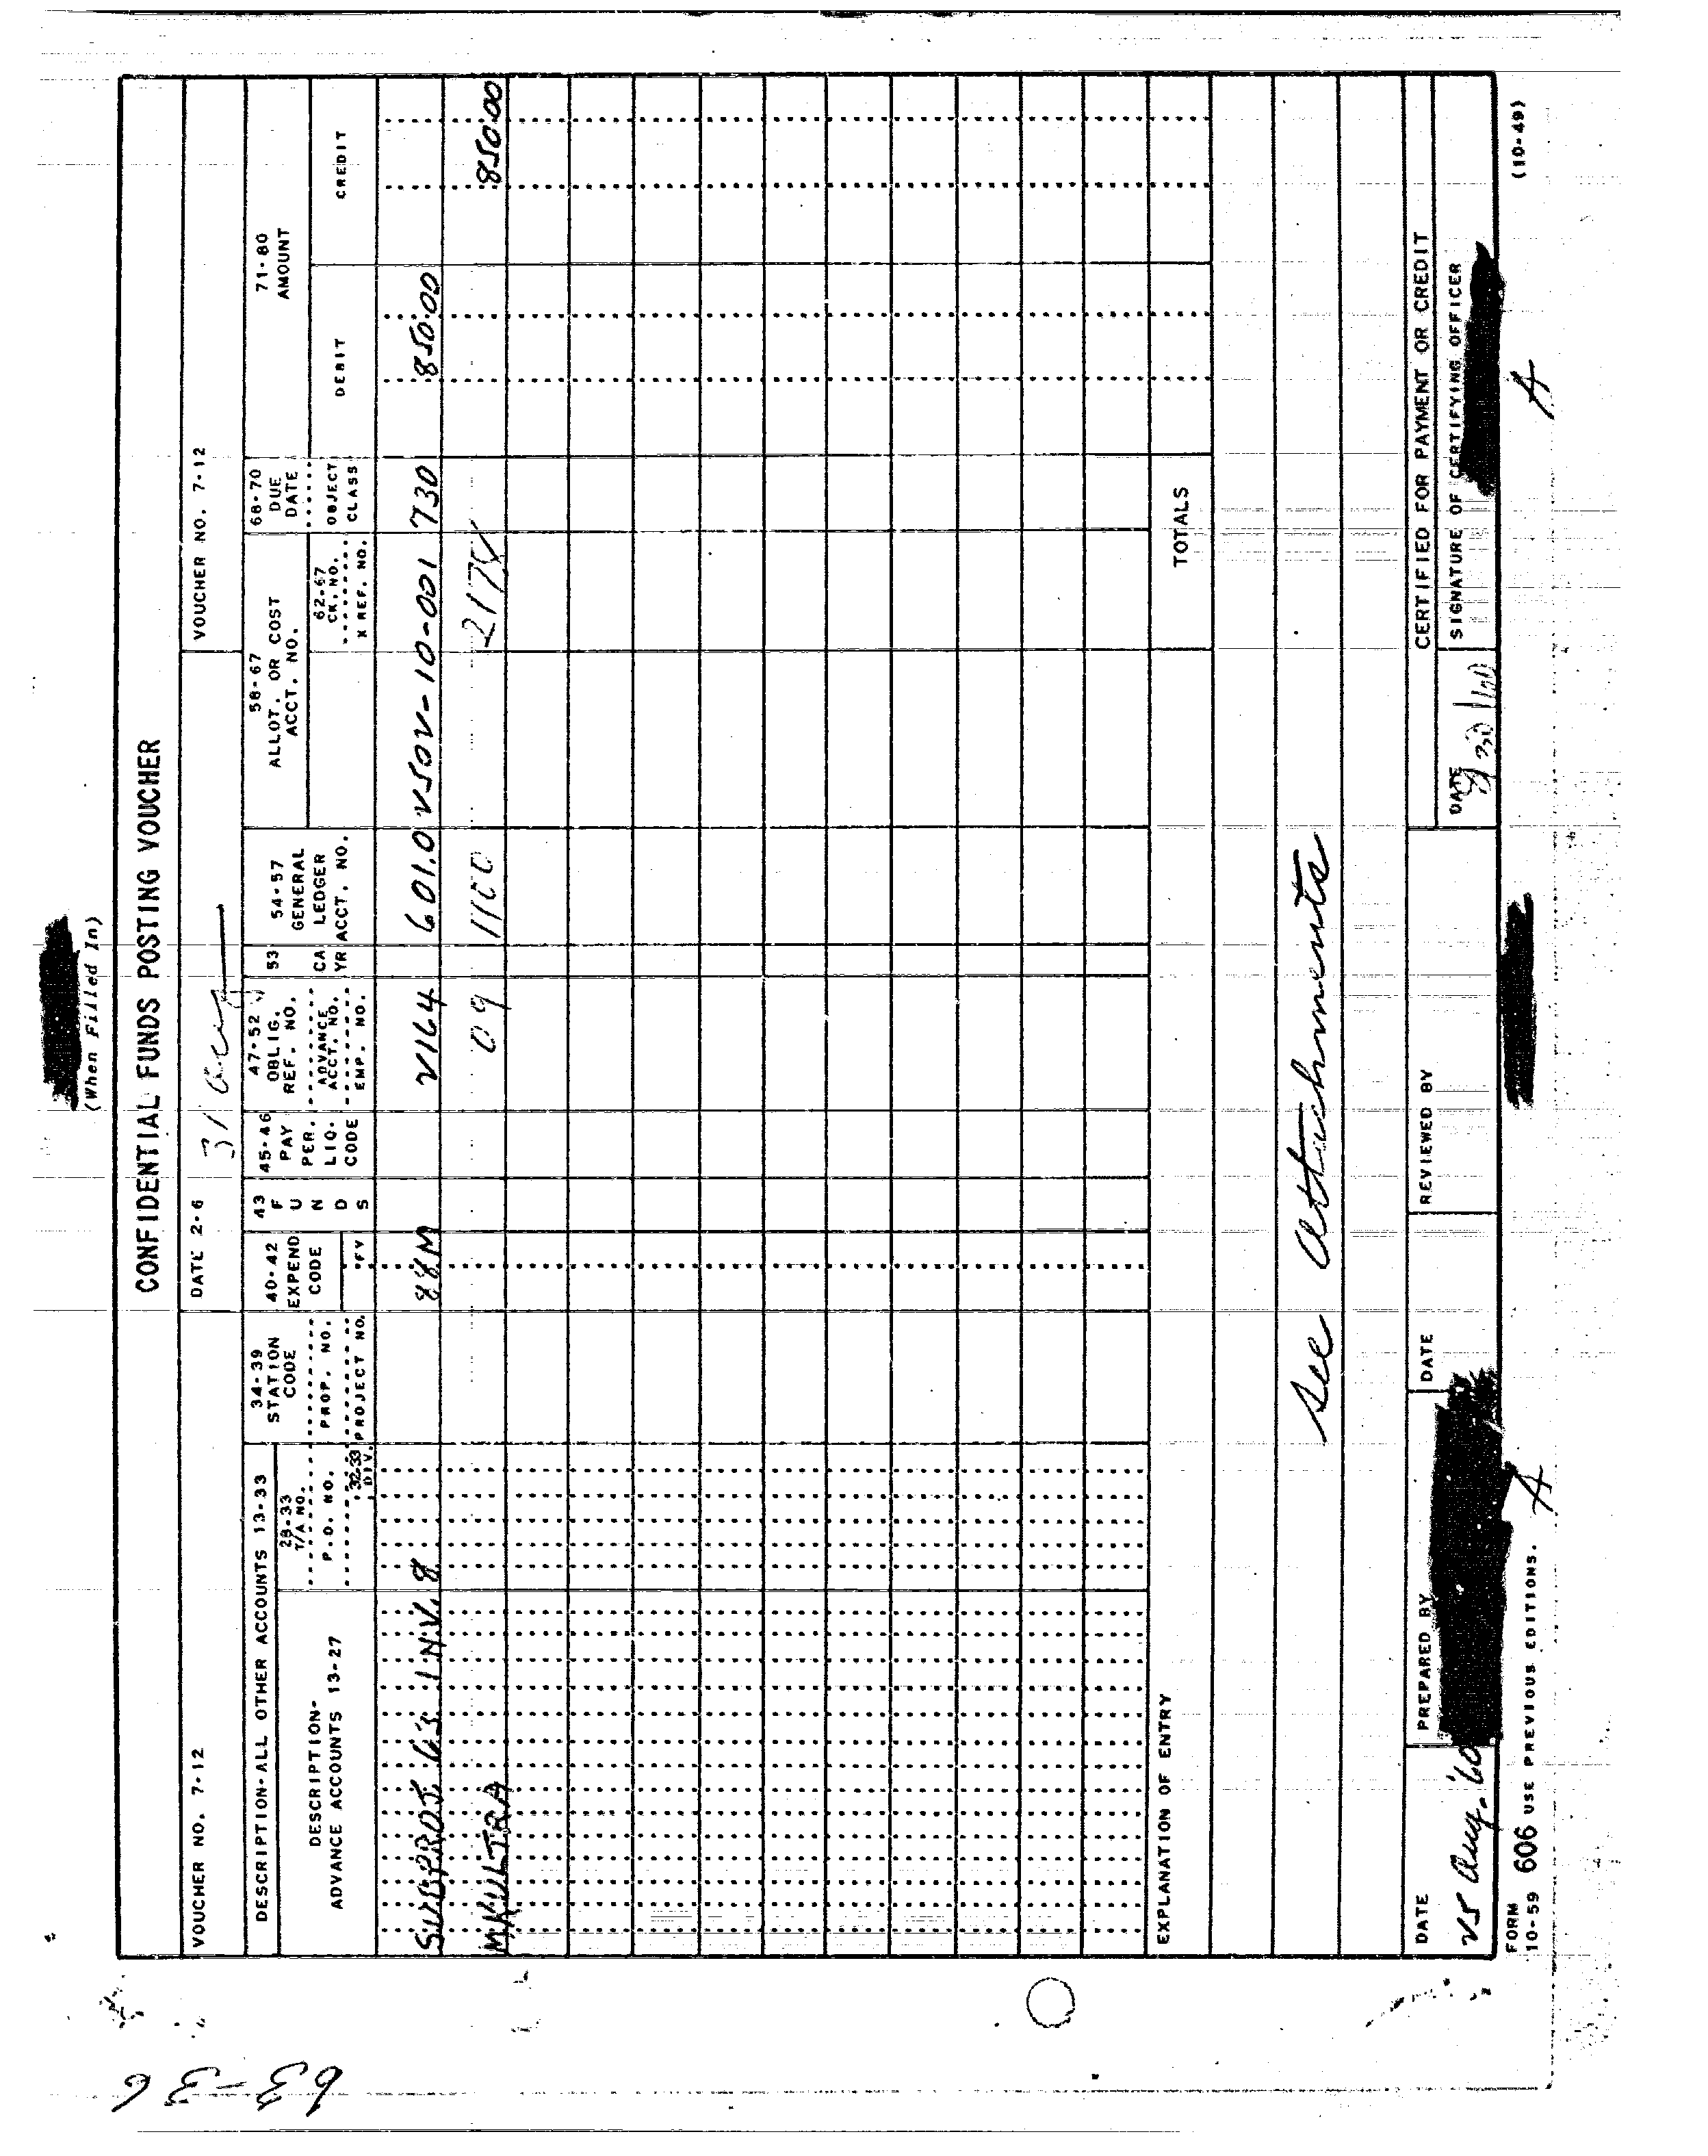 (When Filled In)
CONFIDENTIAL FUNDS POSTING VOUCHER
VOUCHER NO. 7-12
DATE 2-6
31 Aug
VOUCHER NO. 7-12
DESCRIPTION-ALL OTHER ACCOUNTS 13-33
DESCRIPTION-
ADVANCE ACCOUNTS 13-27
28-33
T/A NO.
P.O. NO.
32-33
DIV.
34-39
STATION
CODE
PROP. NO.
PROJECT NO.
40-42
EXPEND
CODE
FY
43
F
U
N
D
S
45-46
PAY
PER.
LIQ.
CODE
47-52
OBLIG.
REF. NO.
ADVANCE
ACCT. NO.
EMP. NO.
53
CA
YR
54-57
GENERAL
LEDGER
ACCT. NO.
58-67
ALLOT. OR COST
ACCT. NO.
62-67
CK. NO.
X REF. NO.
68-70
DUE
DATE
OBJECT
CLASS
71-80
AMOUNT
DEBIT
CREDIT
SUBPROJ. 63 INV. 8 88M V164 601.0 V50V-10-001 730 850.00
MKULTRA 09 1100 850.00
TOTALS
EXPLANATION OF ENTRY
See Attachments
DATE
PREPARED BY
DATE
REVIEWED BY
CERTIFIED FOR PAYMENT OR CREDIT
DATE
SIGNATURE OF CERTIFYING OFFICER
25 Aug. '60
FORM
10-59 606 USE PREVIOUS EDITIONS.
A
A
(10-49)
63-36